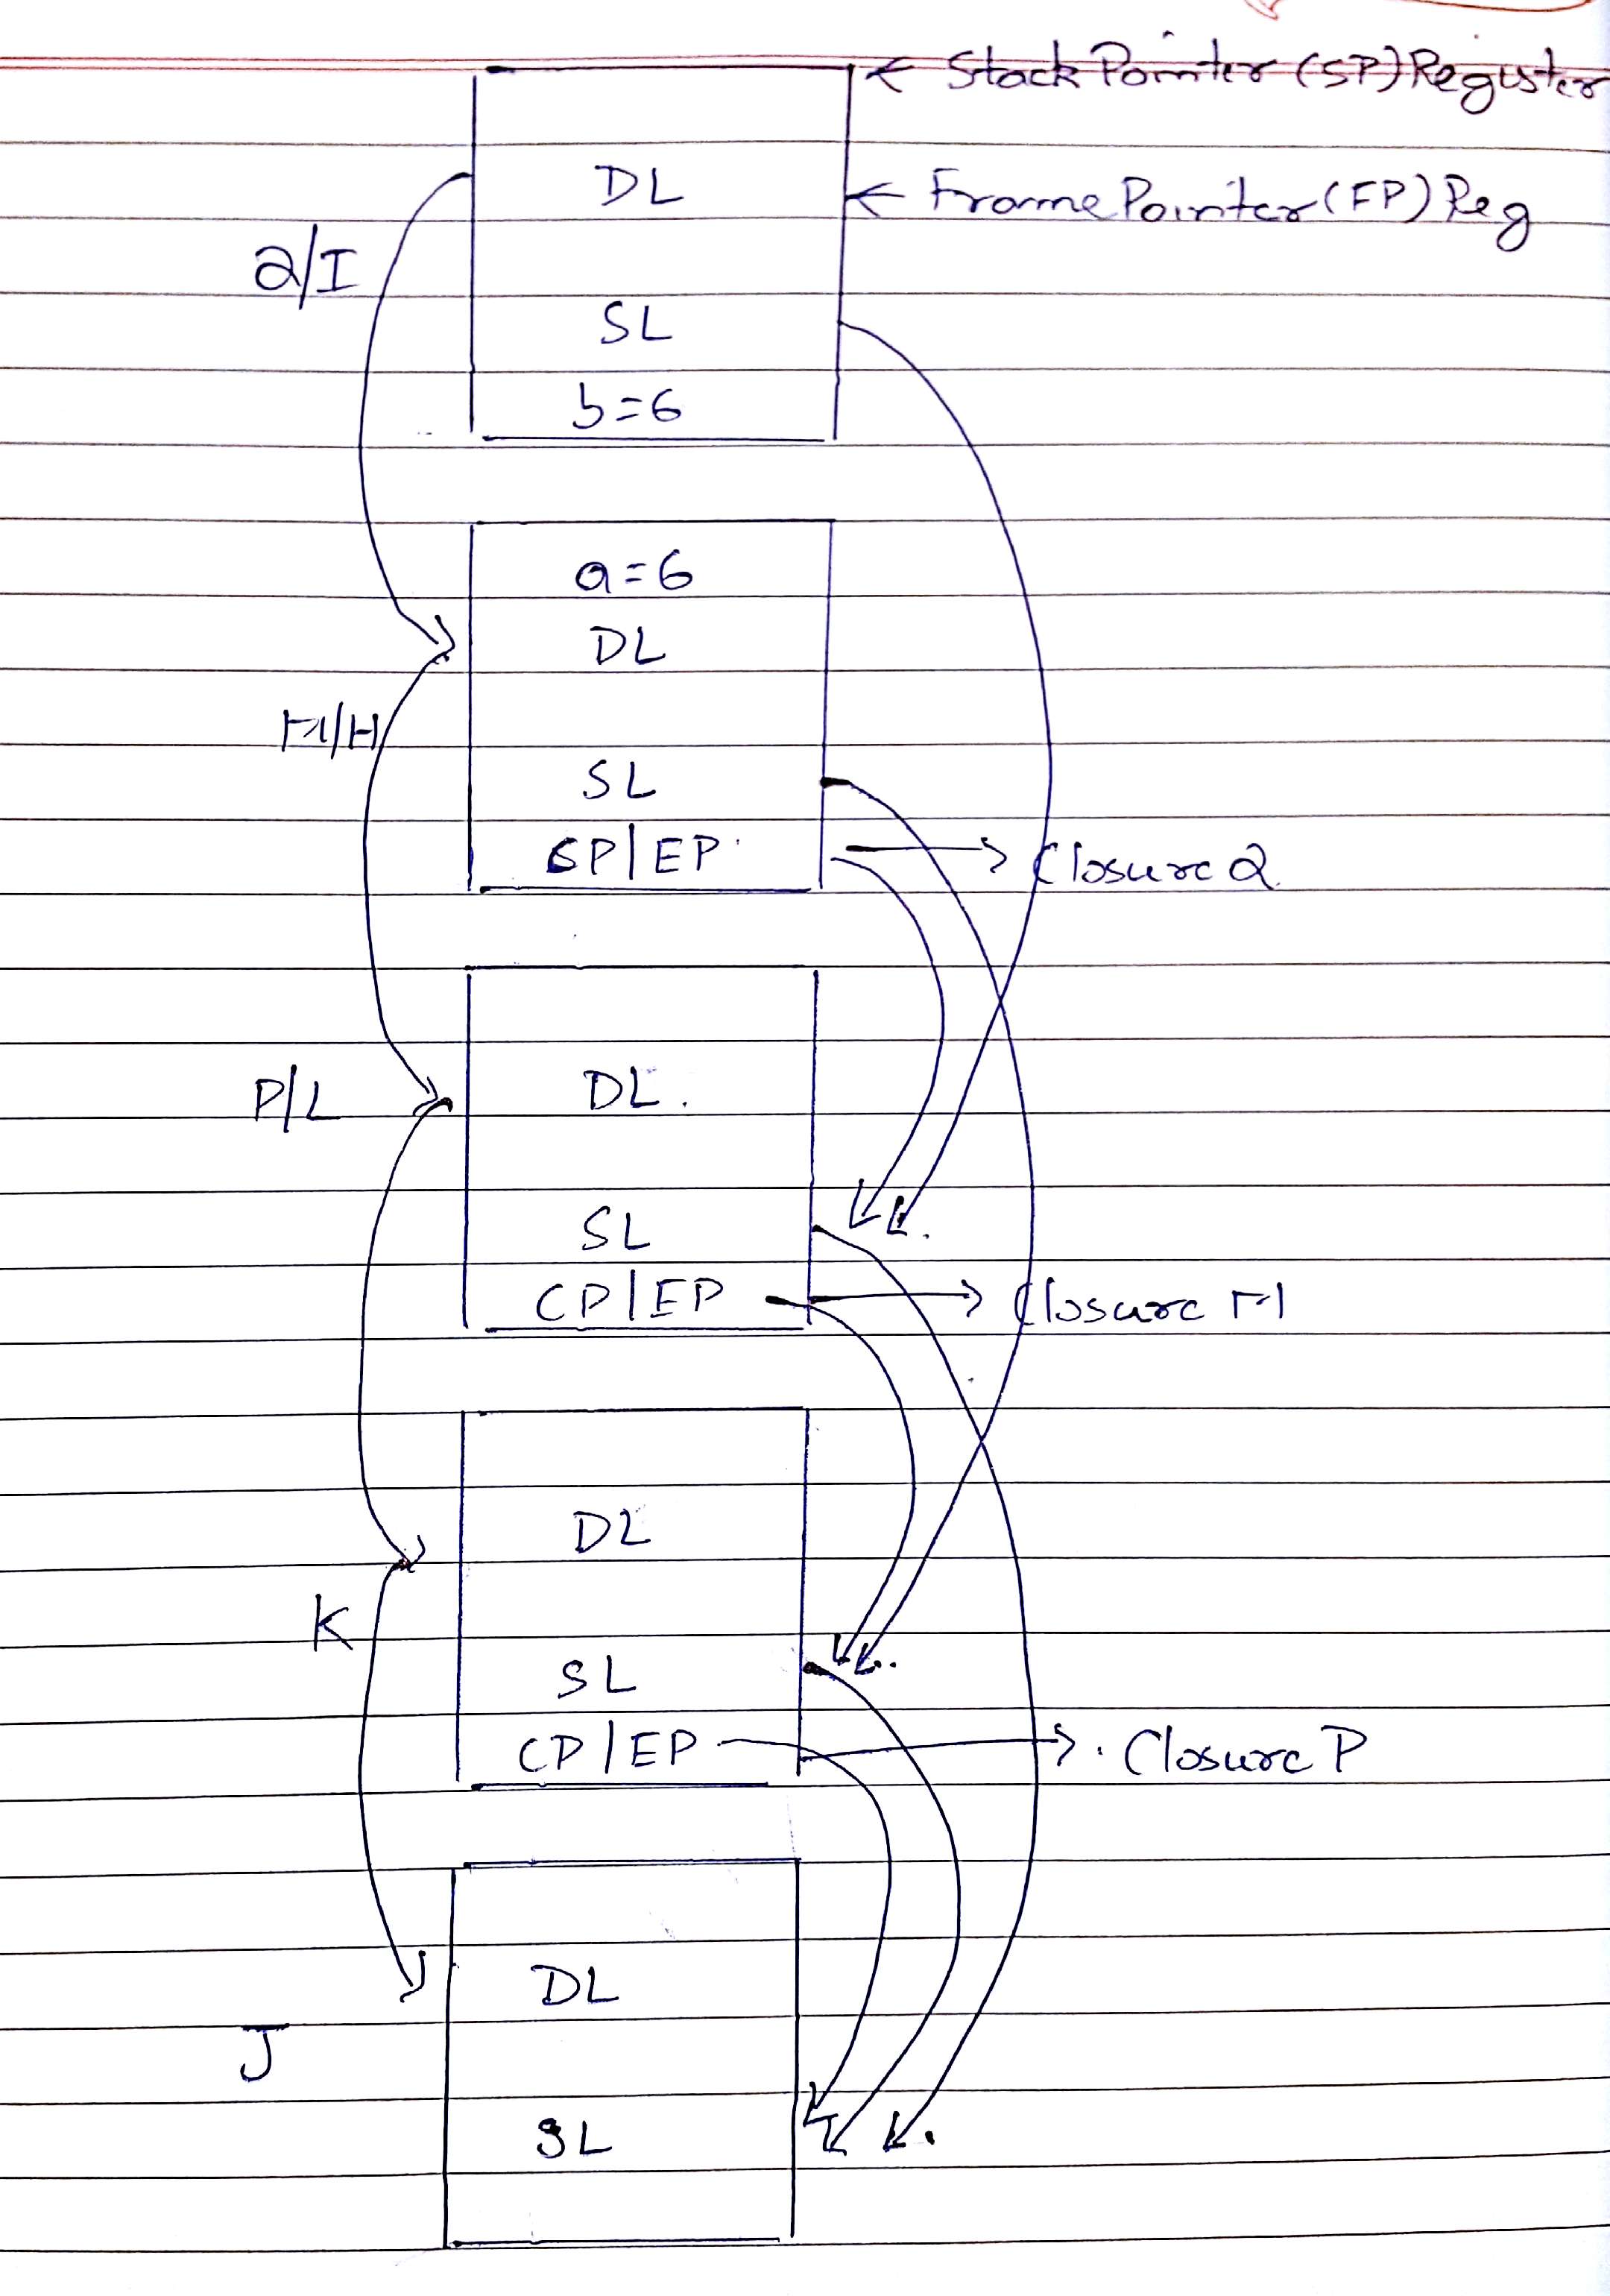 ← Stack Pointer (SP) Register
DL
← Frame Pointer (FP) Reg
Q/I
SL
b=6
a=6
DL
M/H
SL
CP|EP → Closure Q
DL.
P/L
SL
CP|EP → Closure M
DL
K
SL
CP|EP → Closure P
DL
J
SL